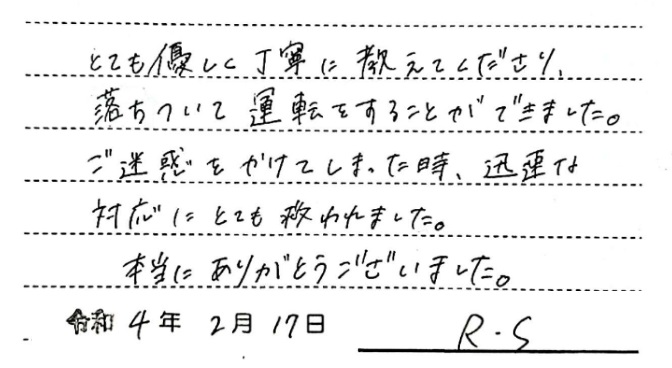 とても優しく丁寧に教えてくださり、
落ちついて運転をすることができました。
ご迷惑をかけてしまった時、迅速な
対応にとても救われました。
本当にありがとうございました。
令和4年2月17日 R.S